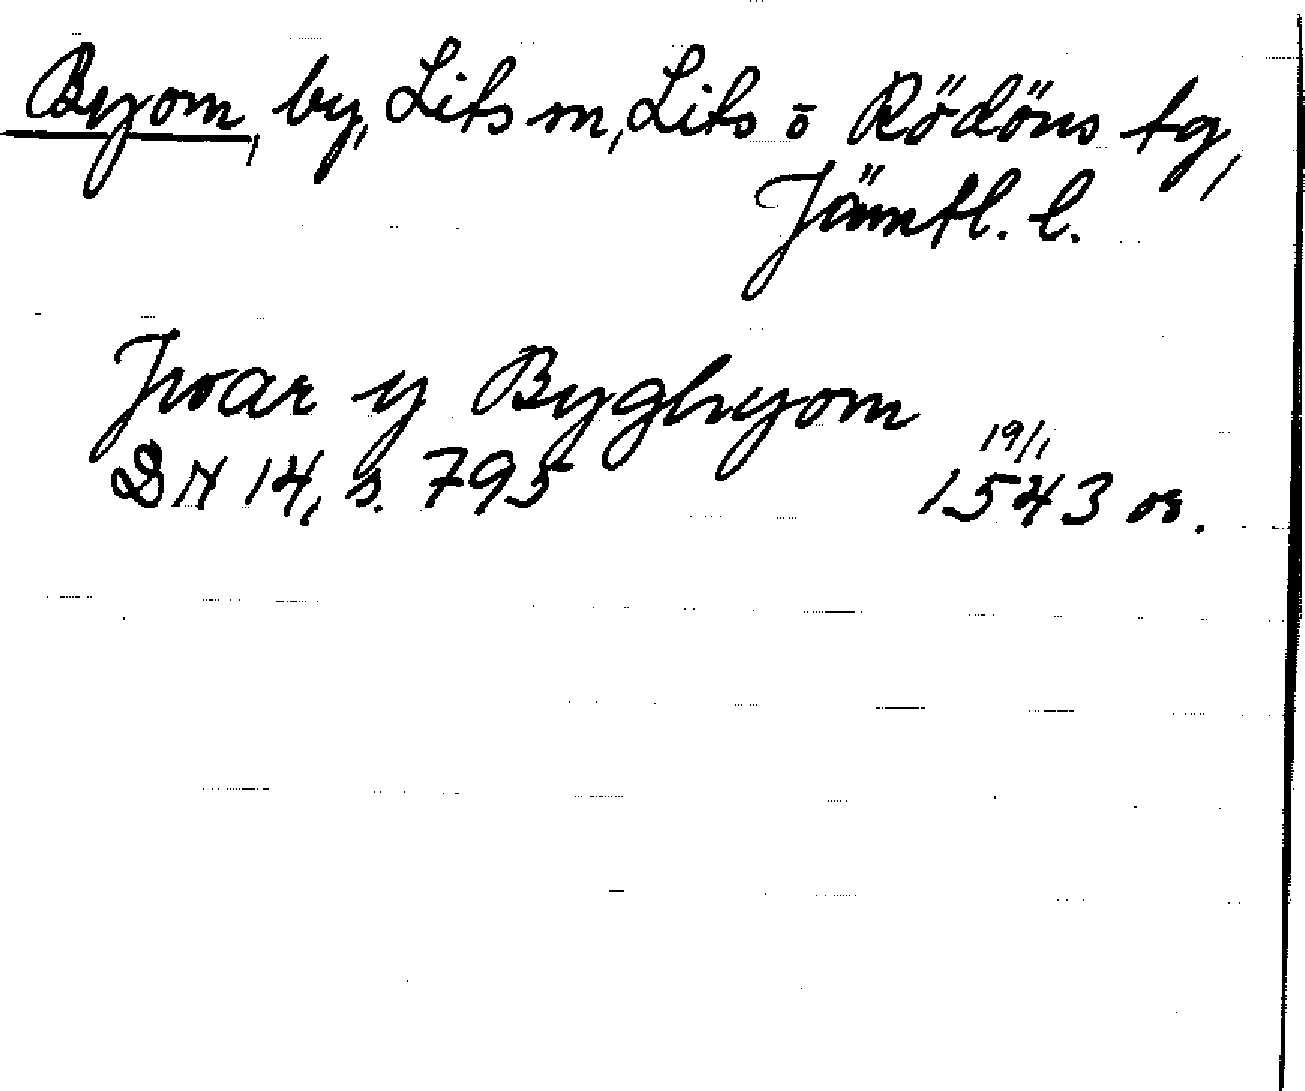 Byom, by, Lits sn, Lits o Rödöns tg,
Jämtl. l.
Jwar y Byghyom
19/1
DN 14, s. 795 1543 or.